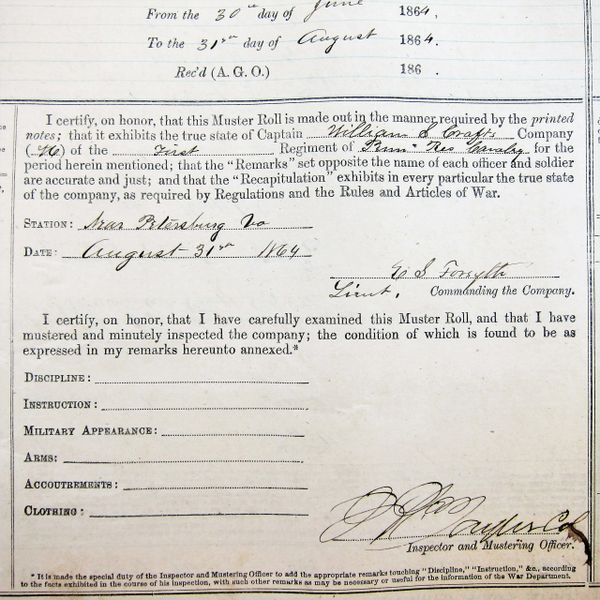 From the 30th day of June 1864,
To the 31st day of August 1864.
Rec'd (A. G. O.) 186 .
I certify, on honor, that this Muster Roll is made out in the manner required by the printed
notes; that it exhibits the true state of Captain William S Crafts Company
( ) of the First Regiment of Penn Res Cavalry for the
period herein mentioned; that the “Remarks” set opposite the name of each officer and soldier
are accurate and just; and that the “Recapitulation” exhibits in every particular the true state
of the company, as required by Regulations and the Rules and Articles of War.
STATION: Near Petersburg Va
DATE: August 31st 1864
S Forsyth
Lieut, Commanding the Company.
I certify, on honor, that I have carefully examined this Muster Roll, and that I have
mustered and minutely inspected the company; the condition of which is found to be as
expressed in my remarks hereunto annexed.*
DISCIPLINE:
INSTRUCTION:
MILITARY APPEARANCE:
ARMS:
ACCOUTREMENTS:
CLOTHING:
Taylor Col
Inspector and Mustering Officer.
* It is made the special duty of the Inspector and Mustering Officer to add the appropriate remarks touching “Discipline,” “Instruction,” &c., according
to the facts exhibited in the course of his inspection, with such other remarks as may be necessary or useful for the information of the War Department.